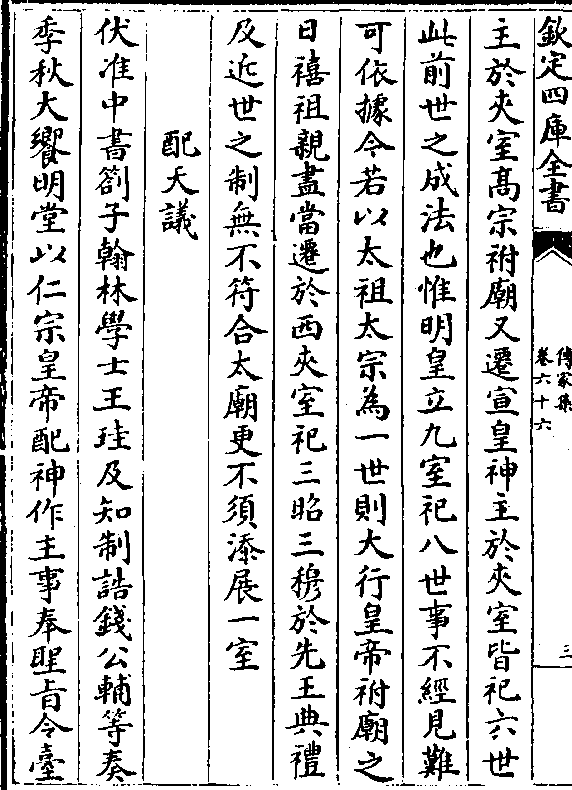 欽定四庫全書
傳家集
卷六十六
三
主於夾室髙宗祔廟又遷宣皇神主於夾室皆祀六世
此前世之成法也惟明皇立九室祀八世事不經見難
可依據今若以太祖太宗為一世則大行皇帝祔廟之
日禧祖親盡當遷於西夾室祀三昭三穆於先王典禮
及近世之制無不符合太廟更不須添展一室
配天議
伏准中書劄子翰林學士王珪及知制誥錢公輔等奏
季秋大饗明堂以仁宗皇帝配神作主事奉聖旨令臺